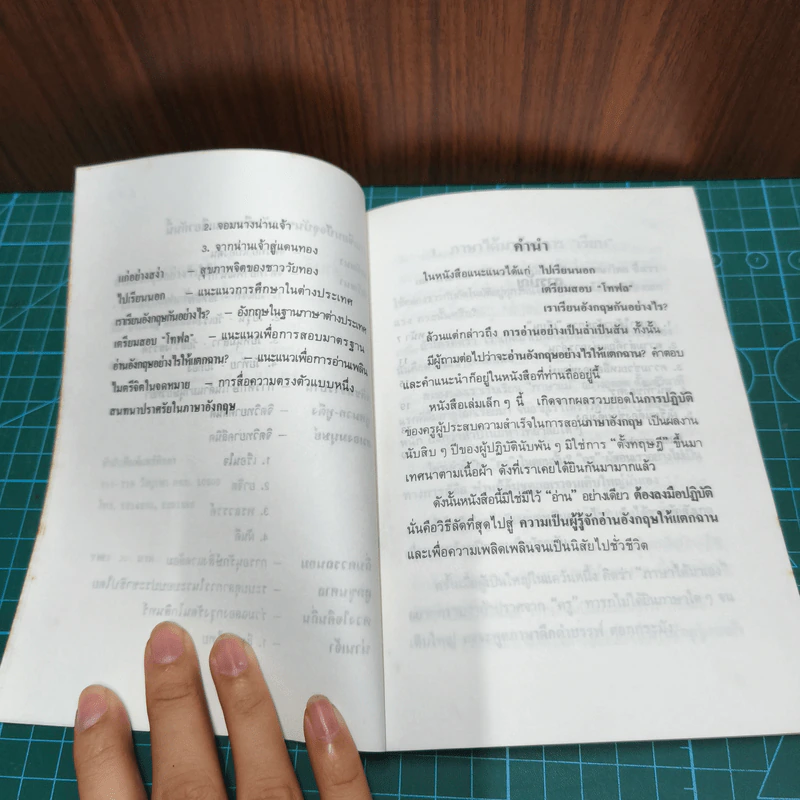 2. จอมนางน่านเจ้า
3. จากน่านเจ้าสู่แดนทอง
แก่อย่างสง่า – สุขภาพจิตของชาววัยทอง
ไปเรียนนอก – แนะแนวการศึกษาในต่างประเทศ
เราเรียนอังกฤษกันอย่างไร? – อังกฤษในฐานภาษาต่างประเทศ
เตรียมสอบ "โทฟล" – แนะแนวเพื่อการสอบมาตรฐาน
อ่านอังกฤษอย่างไรให้แตกฉาน? – แนะแนวเพื่อการอ่านเพลิน
ไมตรีจิตในจดหมาย – การสื่อความตรงตัวแบบหนึ่ง
สนทนาปราศรัยในภาษาอังกฤษ
คำนำ
ในหนังสือแนะแนวได้แก่ ไปเรียนนอก
เตรียมสอบ "โทฟล"
เราเรียนอังกฤษกันอย่างไร?
ล้วนแต่กล่าวถึง การอ่านอย่างเป็นล่ำเป็นสัน ทั้งนั้น
มีผู้ถามต่อไปว่าจะอ่านอังกฤษอย่างไรให้แตกฉาน? คำตอบ
และคำแนะนำก็อยู่ในหนังสือที่ท่านถืออยู่นี้
หนังสือเล่มเล็ก ๆ นี้ เกิดจากผลรวบยอดในการปฏิบัติ
ของครูผู้ประสบความสำเร็จในการสอนภาษาอังกฤษ เป็นผลงาน
นับสิบ ๆ ปีของผู้ปฏิบัตินับพัน ๆ มิใช่การ "ตั้งทฤษฎี" ขึ้นมา
เทศนาตามเนื้อผ้า ดังที่เราเคยได้ยินกันมามากแล้ว
ดังนั้นหนังสือนี้มิใช่มีไว้ "อ่าน" อย่างเดียว ต้องลงมือปฏิบัติ
นั่นคือวิธีลัดที่สุดไปสู่ ความเป็นผู้รู้จักอ่านอังกฤษให้แตกฉาน
และเพื่อความเพลิดเพลินจนเป็นนิสัยไปชั่วชีวิต